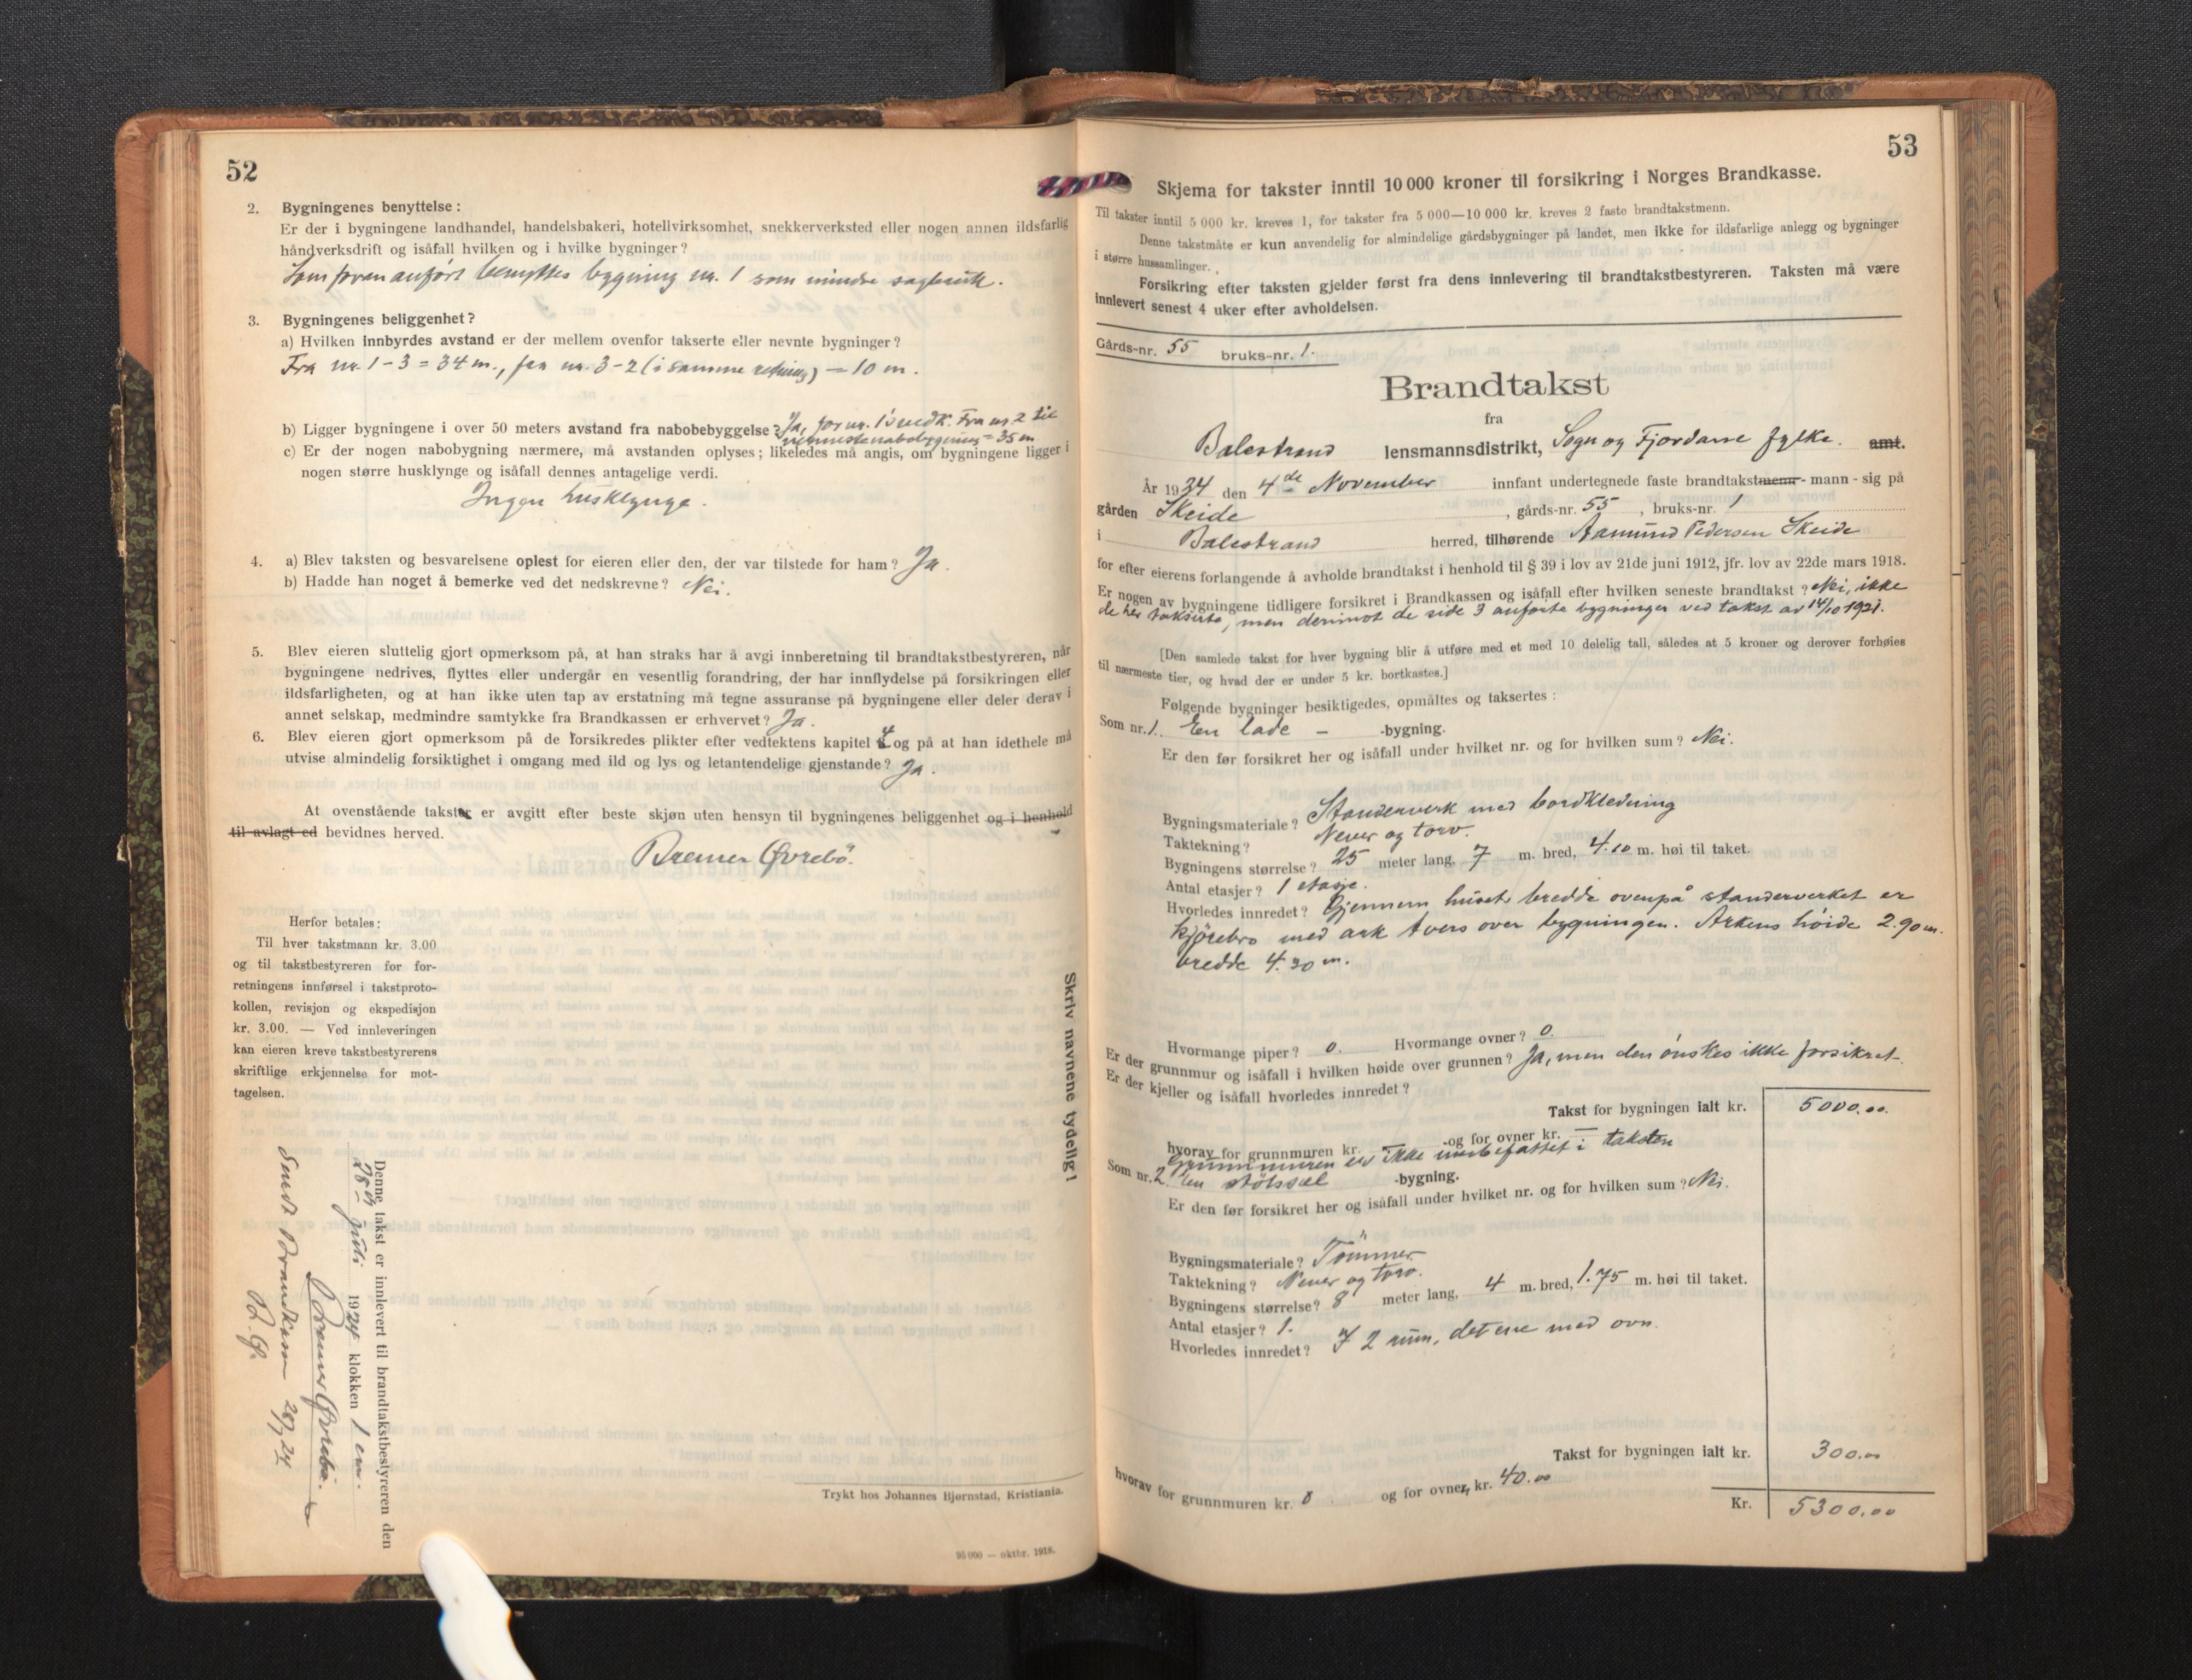 52
2. Bygningenes benyttelse:
Er der i bygningene landhandel, handelsbakeri, hotellvirksomhet, snekkerverksted eller nogen annen ildsfarlig
håndverksdrift og isåfall hvilken og i hvilke bygninger?
Som foran anført benyttes bygning nr. 1 som mindre sagbruk.
3. Bygningenes beliggenhet?
a) Hvilken innbyrdes avstand er der mellem ovenfor takserte eller nevnte bygninger?
Fra nr. 1-3 = 34 m., fra nr. 3-2 (i samme retning) = 10 m.
b) Ligger bygningene i over 50 meters avstand fra nabobebyggelse? Ja, for nr. 1's vedk. Fra nr 2 til
nærmeste nabobygning = 35 m
c) Er der nogen nabobygning nærmere, må avstanden oplyses; likeledes må angis, om bygningene ligger i
nogen større husklynge og isåfall dennes antagelige verdi.
Ingen husklynge.
4. a) Blev taksten og besvarelsene oplest for eieren eller den, der var tilstede for ham? Ja.
b) Hadde han noget å bemerke ved det nedskrevne? Nei.
5. Blev eieren sluttelig gjort opmerksom på, at han straks har å avgi innberetning til brandtakstbestyreren, når
bygningene nedrives, flyttes eller undergår en vesentlig forandring, der har innflydelse på forsikringen eller
ildsfarligheten, og at han ikke uten tap av erstatning må tegne assuranse på bygningene eller deler derav i
annet selskap, medmindre samtykke fra Brandkassen er erhvervet? Ja.
6. Blev eieren gjort opmerksom på de forsikredes plikter efter vedtektens kapitel 4 og på at han idethele må
utvise almindelig forsiktighet i omgang med ild og lys og letantendelige gjenstande? Ja.
At ovenstående takster er avgitt efter beste skjøn uten hensyn til bygningenes beliggenhet og i henhold
til avlagt ed bevidnes herved.
Bremer Øvrebö.
Herfor betales:
Til hver takstmann kr. 3.00
og til takstbestyreren for for-
retningens innførsel i takstproto-
kollen, revisjon og ekspedisjon
kr. 3.00. — Ved innleveringen
kan eieren kreve takstbestyrerens
skriftlige erkjennelse for mot-
tagelsen.
Skriv navnene tydelig!
Denne takst er innlevert til brandtakstbestyreren den
28de juli 1924 klokken 1 em.
Bremer Øvrebö.
Sendt Brandkassen 28/7 24
Trykt hos Johannes Bjørnstad, Kristiania.
95 000 — oktbr. 1918.
53
Skjema for takster inntil 10 000 kroner til forsikring i Norges Brandkasse.
Til takster inntil 5 000 kr. kreves 1, for takster fra 5 000—10 000 kr. kreves 2 faste brandtakstmenn.
Denne takstmåte er kun anvendelig for almindelige gårdsbygninger på landet, men ikke for ildsfarlige anlegg og bygninger
i større hussamlinger.
Forsikring efter taksten gjelder først fra dens innlevering til brandtakstbestyreren. Taksten må være
innlevert senest 4 uker efter avholdelsen.
Gårds-nr. 55 bruks-nr. 1.
Brandtakst
fra
Balestrand lensmannsdistrikt, Sogn og Fjordane fylke. amt.
År 1924 den 4de November innfant undertegnede faste brandtakstmenn - mann - sig på
gården Skeide, gårds-nr. 55, bruks-nr. 1
i Balestrand herred, tilhørende Aamund Pedersen Skeide
for efter eierens forlangende å avholde brandtakst i henhold til § 39 i lov av 21de juni 1912, jfr. lov av 22de mars 1918.
Er nogen av bygningene tidligere forsikret i Brandkassen og isåfall efter hvilken seneste brandtakst? Nei, ikke
de her takserte, men derimot de side 3 anførte bygninger ved takst av 14/10 1921.
[Den samlede takst for hver bygning blir å utføre med et med 10 delelig tall, således at 5 kroner og derover forhøies
til nærmeste tier, og hvad der er under 5 kr. bortkastes.]
Følgende bygninger besiktigedes, opmåltes og taksertes:
Som nr. 1. En lade - -bygning.
Er den før forsikret her og isåfall under hvilket nr. og for hvilken sum? Nei.
Bygningsmateriale? Standerverk med bordkledning
Taktekning? Never og torv.
Bygningens størrelse? 25 meter lang, 7 m. bred, 4.10 m. høi til taket.
Antal etasjer? 1 etasje.
Hvorledes innredet? Gjennem husets bredde ovenpå standerverket er
kjørebro med ark tvers over bygningen. Arkens høide 2.90 m.
bredde 4.20 m.
Hvormange piper? 0. Hvormange ovner? 0.
Er der grunnmur og isåfall i hvilken høide over grunnen? Ja, men den ønskes ikke forsikret.
Er der kjeller og isåfall hvorledes innredet?
Takst for bygningen ialt kr. 5000.00.
hvorav for grunnmuren kr. — og for ovner kr. —
Grunnmuren er ikke innbefattet i taksten
Som nr. 2. En stölssel -bygning.
Er den før forsikret her og isåfall under hvilket nr. og for hvilken sum? Nei.
Bygningsmateriale? Tømmer
Taktekning? Never og torv.
Bygningens størrelse? 8 meter lang, 4 m. bred, 1.75 m. høi til taket.
Antal etasjer? 1.
Hvorledes innredet? I 2 rum, det ene med ovn.
Takst for bygningen ialt kr. 300.00
hvorav for grunnmuren kr. 0 og for ovner kr. 40.00
Kr. 5300.00